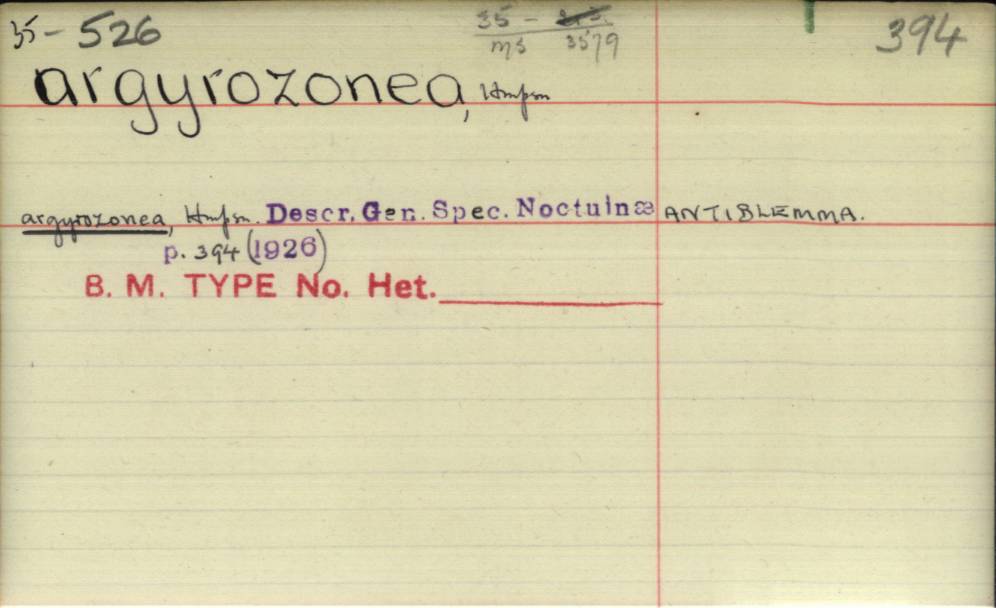 35-526
35 -
ms 3579
394
argyrozonea, Hmpsn
argyrozonea, Hmpsn. Descr. Gen. Spec. Noctuinæ ANTIBLEMMA.
p. 394 (1926)
B. M. TYPE No. Het.